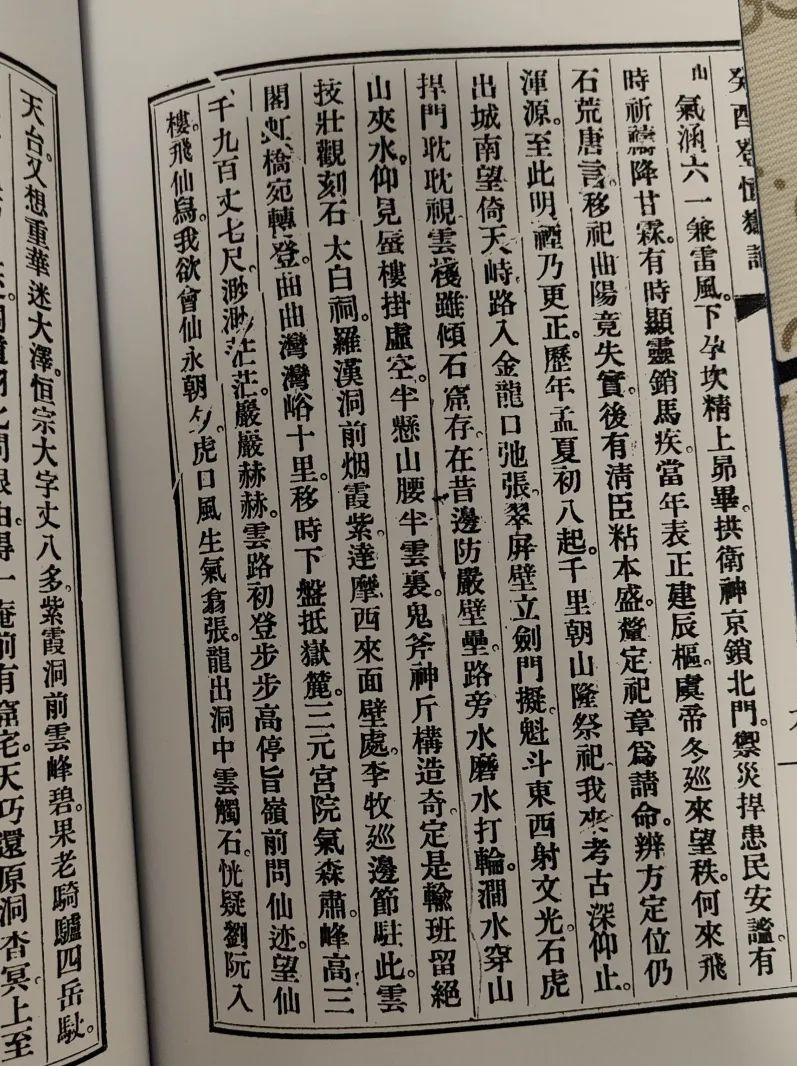 癸酉登恒嶽記
山
氣涵六一兼雷風。下孕坎精上昴畢。拱衛神京鎖北門。禦災捍患民安謐。有
時祈禱降甘霖。有時顯靈銷馬疾。當年表正建辰樞。虞帝冬廵來望秩。何來飛
石荒唐言。移祀曲陽竟失實。後有清臣粘本盛。釐定祀章爲請命。辨方定位仍
渾源。至此明禋乃更正。歷年孟夏初八起。千里朝山隆祭祀。我來考古深仰止。
出城南望倚天峙。路入金龍口弛張。翠屏壁立劍門擬。魁斗東西射文光。石虎
捍門耽耽視。雲棧雖傾石窟存。在昔邊防嚴壁壘。路旁水磨水打輪。澗水穿山
山夾水。仰見蜃樓掛虛空。半懸山腰半雲裏。鬼斧神斤構造奇。定是輸班留絕
技。壯觀刻石太白祠。羅漢洞前烟霞紫。達摩西來面壁處。李牧廵邊節駐此。雲
閣虹橋宛轉登。曲曲灣灣峪十里。移時下盤抵嶽麓。三元宮院氣森肅。峰高三
千九百丈七尺。渺渺茫茫。巖巖赫赫。雲路初登步步高。停旨嶺前問仙迹。望仙
樓飛仙舄。我欲會仙永朝夕。虎口風生氣翕張。龍出洞中雲觸石。恍疑劉阮入
天台。又想重華迷大澤。恒宗大字丈八多。紫霞洞前雲峰碧。果老騎驢四岳馱。
得一庵前有窟宅。天巧還原洞杳冥。上至